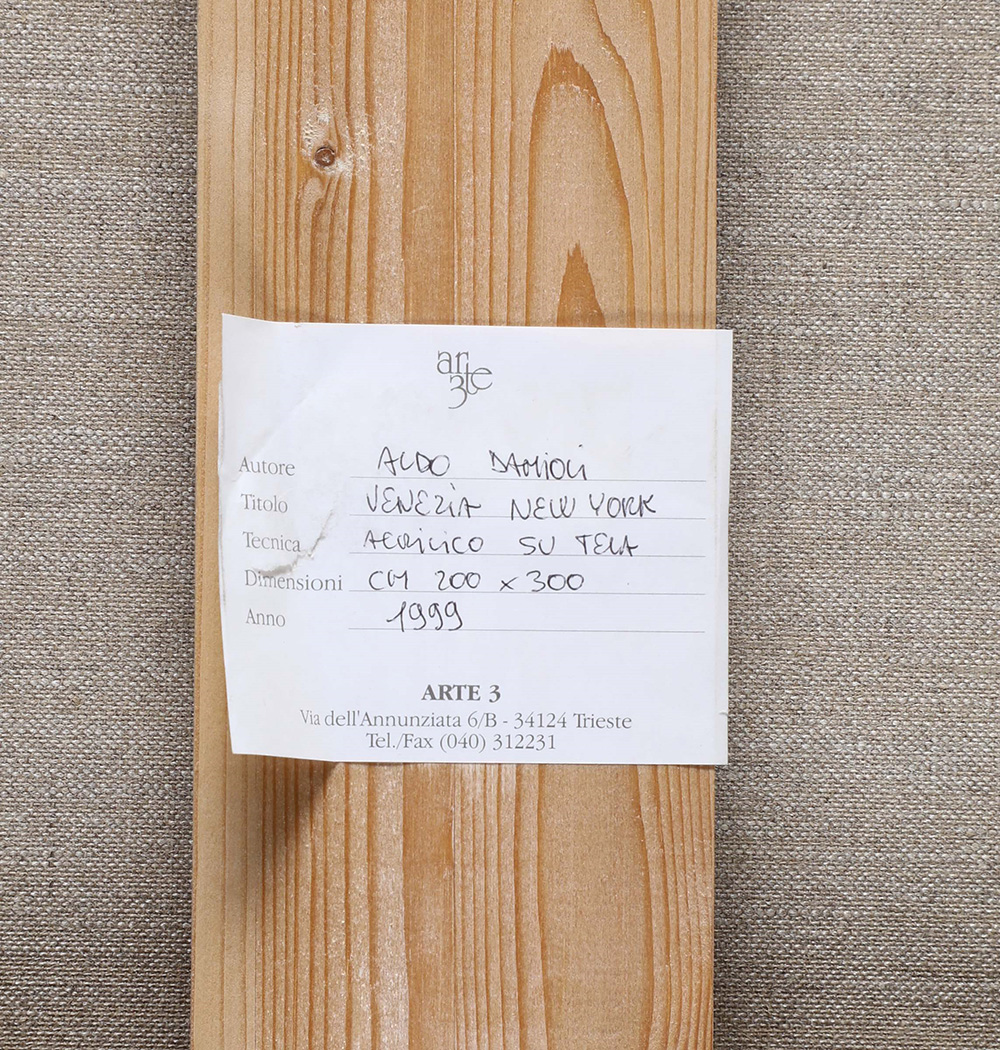 ar
3te
Autore ALDO DAMIOLI
Titolo VENEZIA NEW YORK
Tecnica ACRILICO SU TELA
Dimensioni CM 200 x 300
Anno 1999
ARTE 3
Via dell'Annunziata 6/B - 34124 Trieste
Tel./Fax (040) 312231